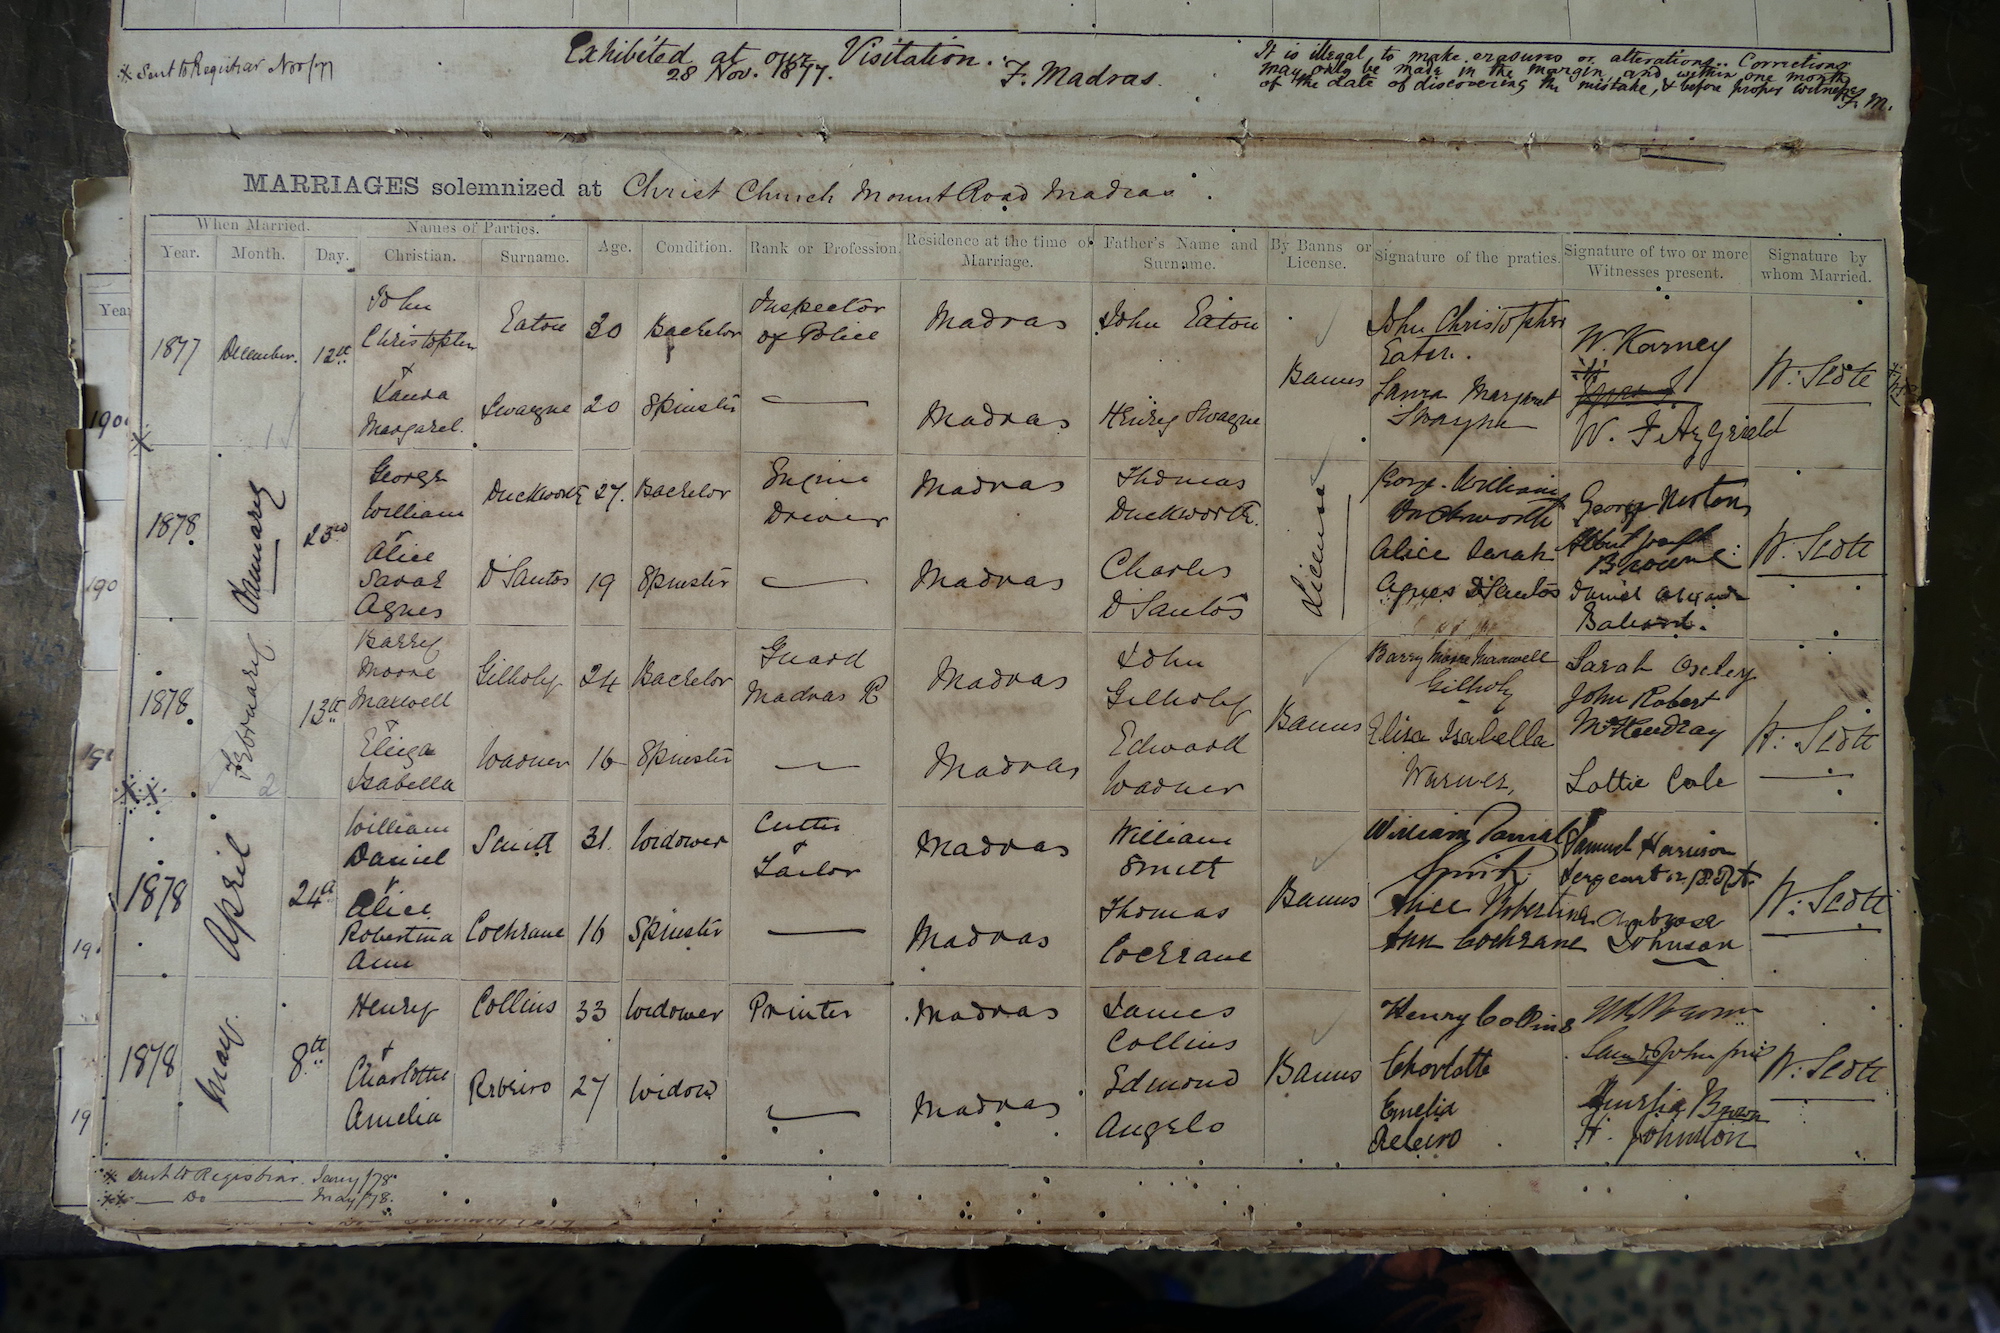 * Sent to Registrar Nov/77
Exhibited at our Visitation.
28 Nov. 1877.
F. Madras.
It is illegal to make erasures or alterations. Corrections
may only be made in the margin, and within one month
of the date of discovering the mistake, & before proper witnesses
F. M.
MARRIAGES solemnized at Christ Church Mount Road Madras.
When Married.
Names of Parties.
Year. Month. Day. Christian. Surname. Age. Condition. Rank or Profession. Residence at the time of Marriage. Father's Name and Surname. By Banns or License. Signature of the praties. Signature of two or more Witnesses present. Signature by whom Married.
1877 December. 12th
John Christopher Eaton 30 Bachelor Inspector of Police Madras John Eaton
+
Laura Margaret. Swayne 20 Spinster — Madras Henry Swayne
Banns
John Christopher
Eaton.
Laura Margaret
Swayne
W. Karney
W. FitzGerald
W. Scott
1878. January 23rd
George William Duckworth 27. Bachelor Engine Driver Madras Thomas Duckworth.
+
Alice Sarah Agnes D'Santos 19 Spinster — Madras Charles D'Santos
License
George William
Duckworth
Alice Sarah
Agnes D'Santos
George Norton
Albert Joseph
Browne
Daniel
W. Scott
1878. February 13th
Barry Moore Maxwell Gilholy 24 Bachelor Guard Madras R Madras John Gilholy
+
Eliza Isabella Warner 16 Spinster — Madras Edward Warner
Banns
Barry Moore Maxwell
Gilholy
Eliza Isabella
Warner,
Sarah Oxley
John Robert
McHendray
Lottie Cole
W. Scott
1878 April 24th
William Daniel Smith 31. Widower Cutter + Tailor Madras William Smith
+
Alice Robertina Ann Cochrane 16 Spinster — Madras Thomas Cochrane
Banns
William Daniel
Smith
Alice Robertina
Ann Cochrane
Samuel Harrison
Sergeant
Ambrose
Johnson
W. Scott
1878 May. 8th
Henry Collins 33 Widower Printer Madras James Collins
+
Charlotte Amelia Rebeiro 27 Widow — Madras Edmond Angelo
Banns
Henry Collins
Charlotte
Emelia
Rebeiro.
Amelia Brown
H. Johnson
W. Scott
* Sent to Registrar. Jany/78
** — Do — May/78.